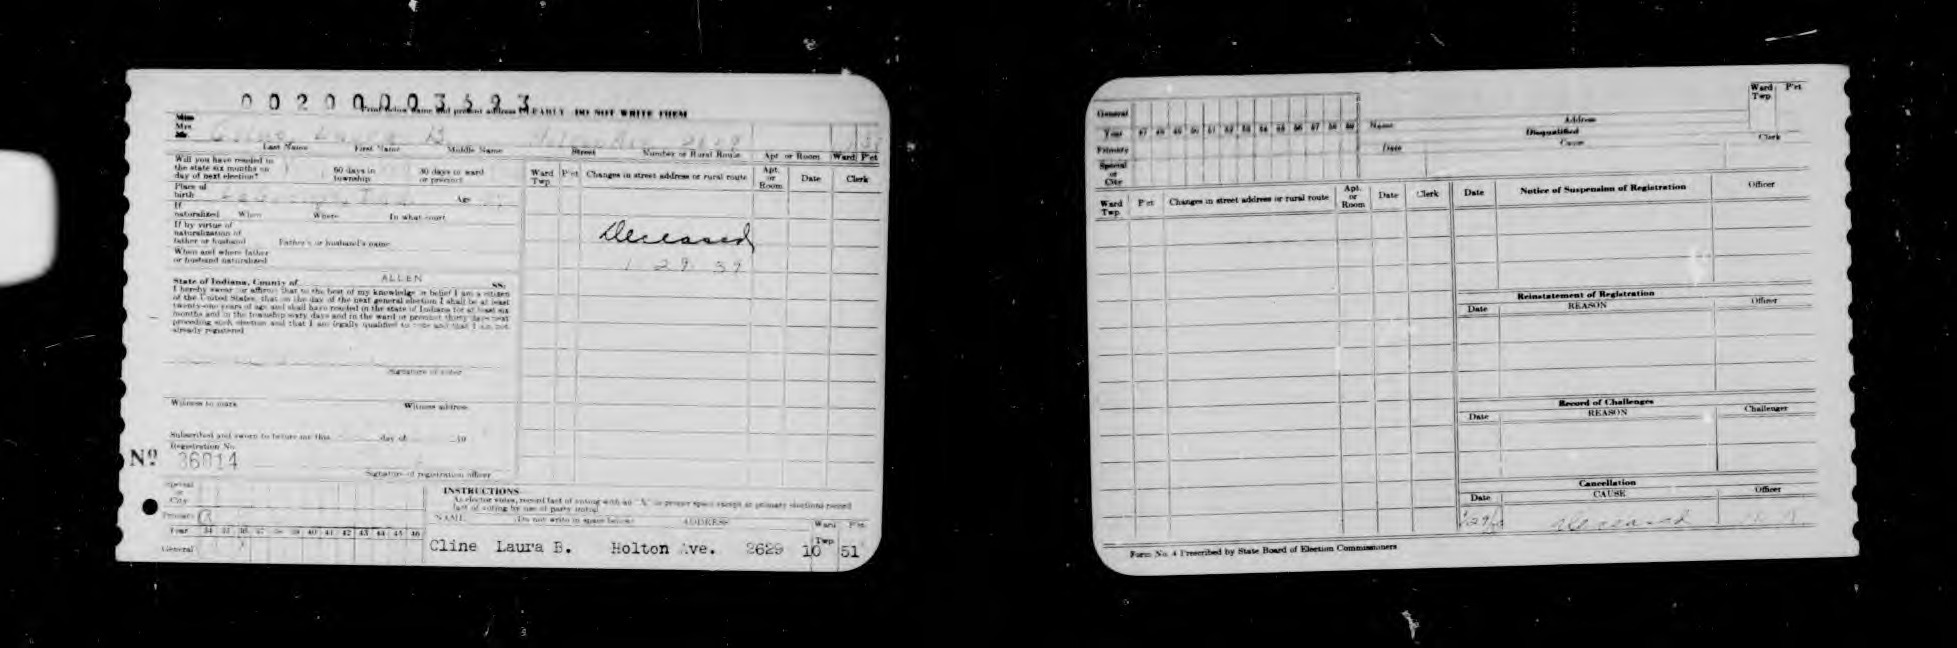 0 0 2 0 0 0 0 3 5 9 3
Print below name and present address CLEARLY DO NOT WRITE THEM
Miss
Mrs.
Mr.
Cline, Laura B.
Last Name First Name Middle Name Street Number or Rural Route Apt or Room Ward P'ct
Will you have resided in
the state six months on
day of next election?
60 days in
township
30 days in ward
or precinct
Place of
birth
Age
If
naturalized When Where In what court
If by virtue of
naturalization of
father or husband Father's or husband's name
When and where father
or husband naturalized
State of Indiana, County of ALLEN SS:
I hereby swear or affirm that to the best of my knowledge or belief I am a citizen
of the United States, that on the day of the next general election I shall be at least
twenty-one years of age and shall have resided in the state of Indiana for at least six
months and in the township sixty days and in the ward or precinct thirty days next
preceding such election and that I am legally qualified to vote and that I am not
already registered
Signature of voter
Witness to mark Witness address
Subscribed and sworn to before me this day of 19
Registration No.
Nº 36014
Signature of registration officer
Ward
Twp. P'ct Changes in street address or rural route Apt.
or
Room Date Clerk
Deceased
1 29 37
Special
or
City
Primary R
Year 34 35 36 37 38 39 40 41 42 43 44 45 46
General
INSTRUCTIONS
As elector votes, record fact of voting with an "X" in proper space except at primary elections record
fact of voting by use of party initial
NAME (Do not write in space below) ADDRESS Ward
Twp. P'ct
Cline Laura B. Holton Ave. 2629 10 51
General
Year 47 48 49 50 51 52 53 54 55 56 57 58 59
Primary
Special
or
City
Name Address
Disqualified
Date Cause Clerk
Ward
Twp P'ct
Ward
Twp P'ct Changes in street address or rural route Apt.
or
Room Date Clerk
Date Notice of Suspension of Registration Officer
Reinstatement of Registration
Date REASON Officer
Record of Challenges
Date REASON Challenger
Cancellation
Date CAUSE Officer
Deceased
Form No. 4 Prescribed by State Board of Election Commissioners